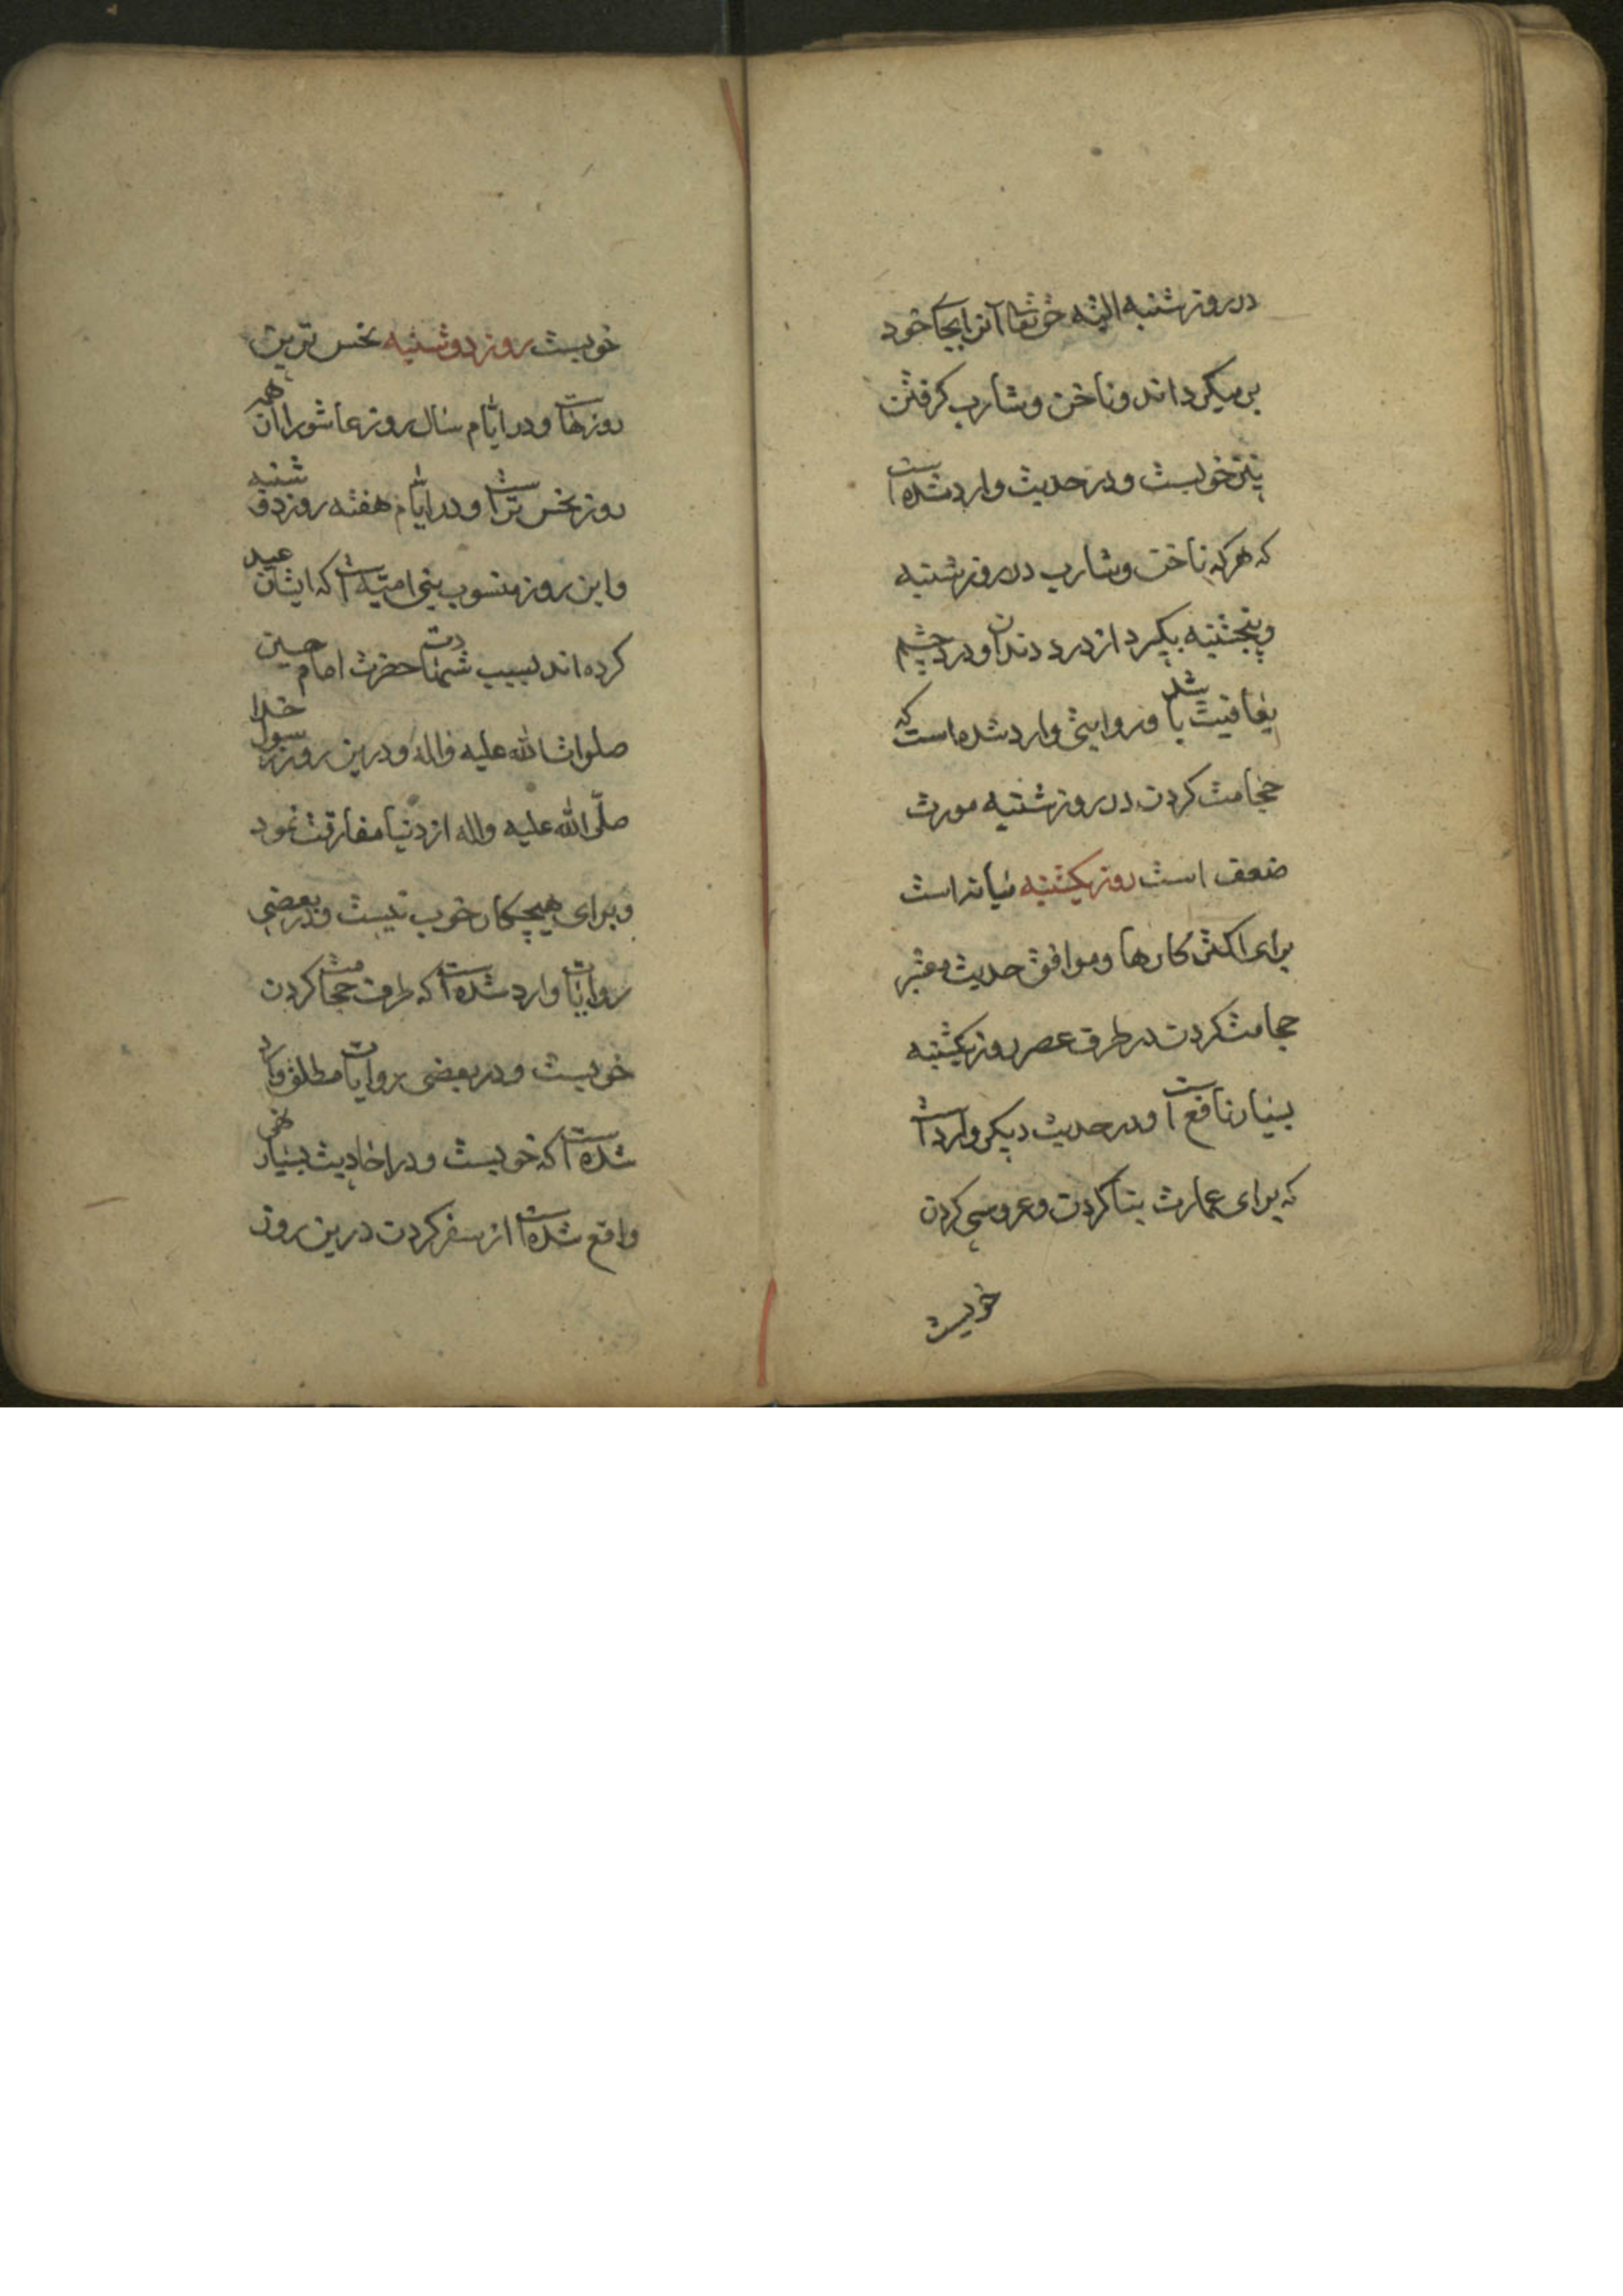 در روز شنبه البته حق تعالی آنرا بجای خود
بر میکرداند و ناخن و شارب کرفتن
نیز خوبست و در حدیث وارد شده است
که هر که ناخن و شارب در روز شنبه
و پنجشنبه بگیرد از درد دندان و درد چشم
بعافیت باشد و روایتی وارد شده است که
حجامت کردن در روز شنبه مورث
ضعف است روز یکشنبه میانه است
برای اکثر کارها و موافق حدیث معتبر
حجامت کردن در طرف عصر روز یکشنبه
بسیار نافع است و در حدیث دیکر وارد است
که برای عمارت بنا کردن و عروسی کردن
خوبست
خوبست روز دوشنبه نحس ترین
روزهاست و در ایام سال روز عاشورا از همه
روز نحس تر است و در ایام هفته روز دوشنبه
و این روز منسوب ببنی امیه است که ایشان عید
کرده اند بسبب شهادت حضرت امام حسین
صلوات الله علیه و اله و درین روز رسول خدا
صلی الله علیه واله از دنیا مفارقت نمود
و برای هیچکار خوب نیست و در بعضی
روایات وارد شده است که طرف حجامت کردن
خوبست و در بعضی روایات مطلق وارد
شده است که خوبست و در احادیث بسیار نهی
واقع شده است از سفر کردن درین روز